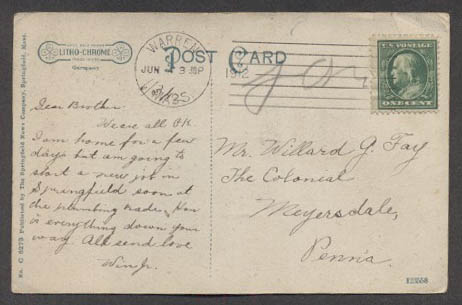 LITHO-CHROME
GERMANY
POST CARD
WARREN
JUN 3
PM
1912
MASS
U.S. POSTAGE
ONE CENT
Dear Brother:
We are all O.K.
I am home for a few
days but am going to
start a new job in
Springfield soon at
the plumbing trade. How
is everything down your
way. All send love
Win Jr.
Mr. Willard G. Fay
The Colonial
Meyersdale,
Penn'a
No. C 5273 Published by The Springfield News Company, Springfield, Mass.